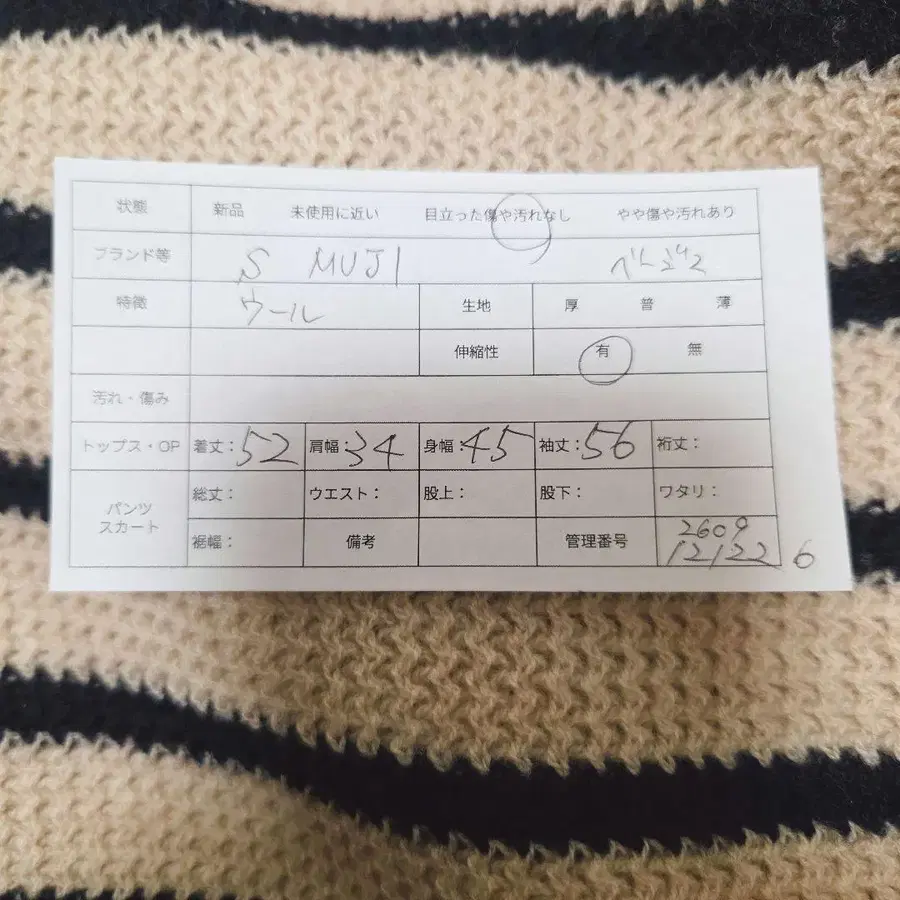 状態 新品 未使用に近い 目立った傷や汚れなし やや傷や汚れあり
ブランド等 S MUJI
特徴 ウール 生地 厚 普 薄
伸縮性 有 無
汚れ・傷み
トップス・OP 着丈:52 肩幅:34 身幅:45 袖丈:56 裄丈:
パンツ スカート 総丈: ウエスト: 股上: 股下: ワタリ:
裾幅: 備考 管理番号 2609
121226